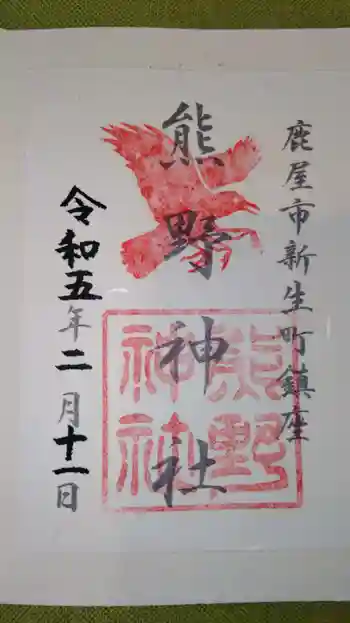 鹿屋市新生町鎮座
熊野神社
令和五年二月十一日
熊野
神社